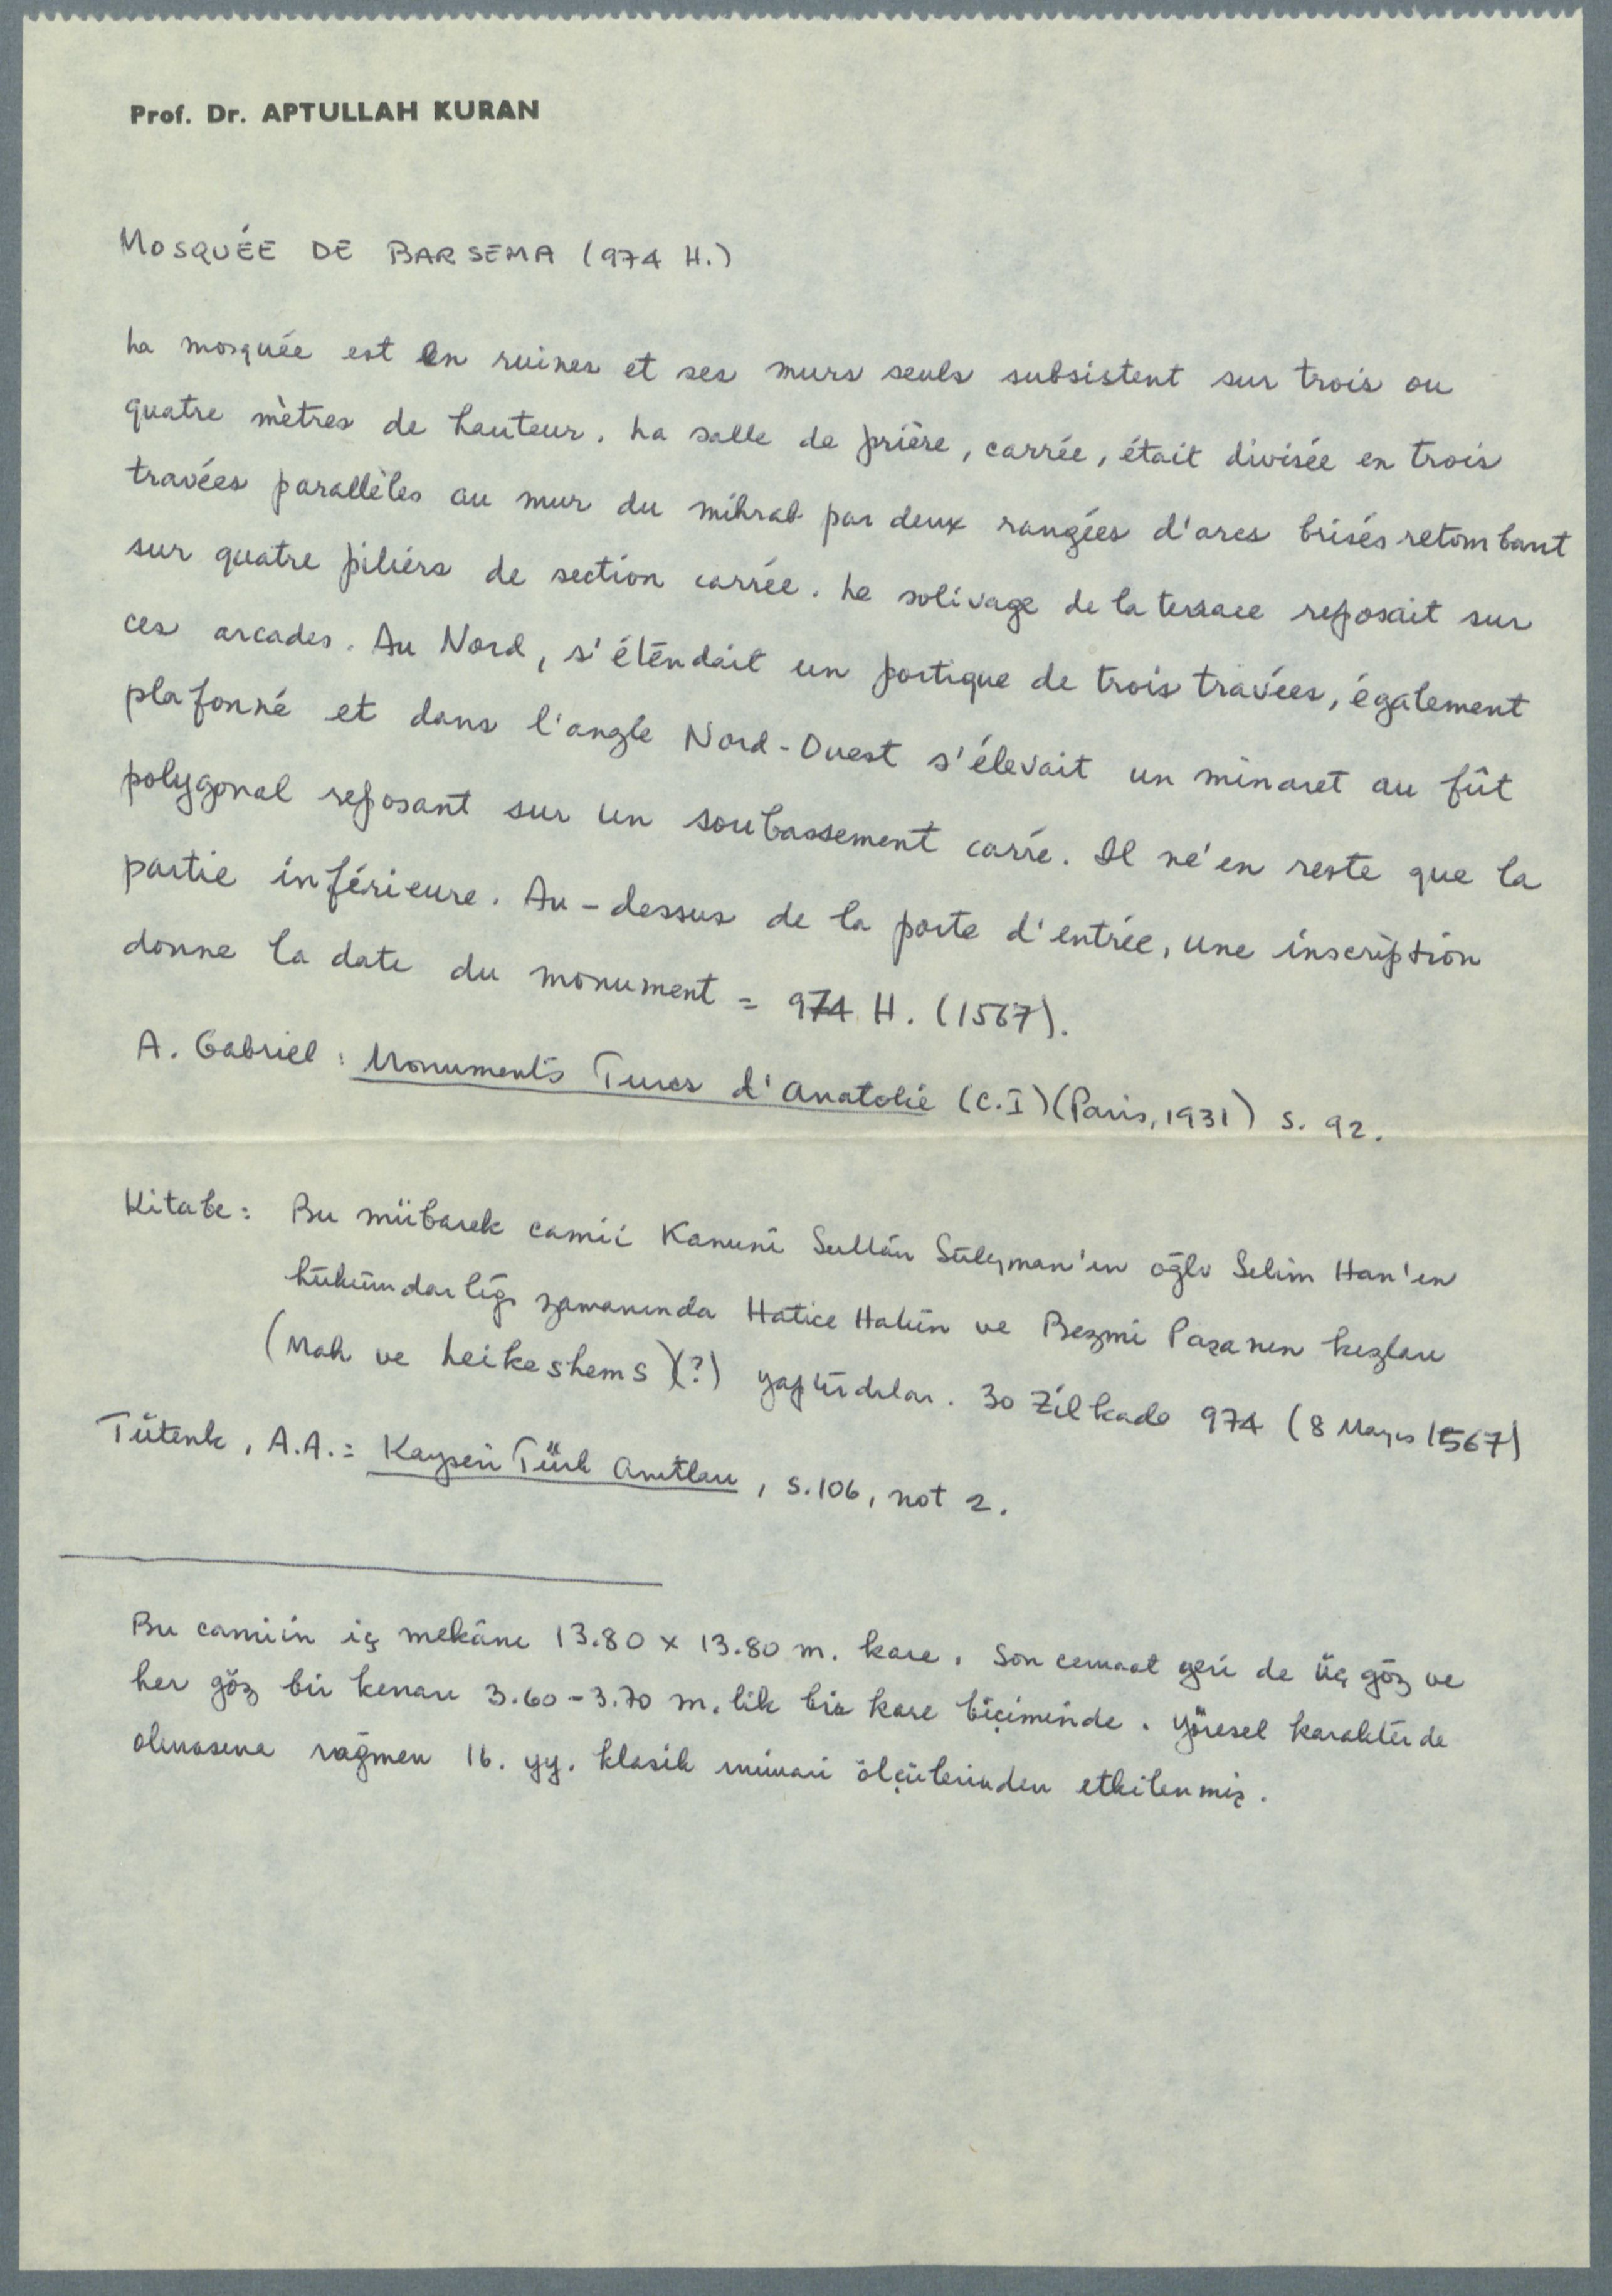 Prof. Dr. APTULLAH KURAN
MOSQUÉE DE BARSEMA (974 H.)
La mosquée est en ruines et ses murs seuls subsistent sur trois ou
quatre mètres de hauteur. La salle de prière, carrée, était divisée en trois
travées parallèles au mur du mihrab par deux rangées d'arcs brisés retombant
sur quatre piliérs de section carrée. Le solivage de la terrace reposait sur
ces arcades. Au Nord, s'étendait un portique de trois travées, également
plafonné et dans l'angle Nord-Ouest s'élevait un minaret au fût
polygonal reposant sur un soubassement carré. Il ne'en reste que la
partie inférieure. Au-dessus de la porte d'entrée, une inscription
donne la date du monument = 974 H. (1567).
A. Gabriel: Monuments Turcs d'Anatolie (C.I)(Paris, 1931) s. 92.
Kitabe: Bu mübarek camii Kanuni Sultân Süleyman'ın oğlu Selim Han'ın
hükümdarlığı zamanında Hatice Hatûn ve Bezmi Paşanın kızları
(Mah ve heikeshems)(?) yaptırdılar. 30 Zilkade 974 (8 Mayıs 1567)
Tütenk, A.A.: Kayseri Türk Anıtları, s.106, not 2.
Bu camiin iç mekânı 13.80 x 13.80 m. kare. Son cemaat yeri de üç göz ve
her göz bir kenarı 3.60-3.70 m.lik bir kare biçiminde. Yöresel karakterde
olmasına rağmen 16. yy. klasik mimari ölçülerinden etkilenmiş.